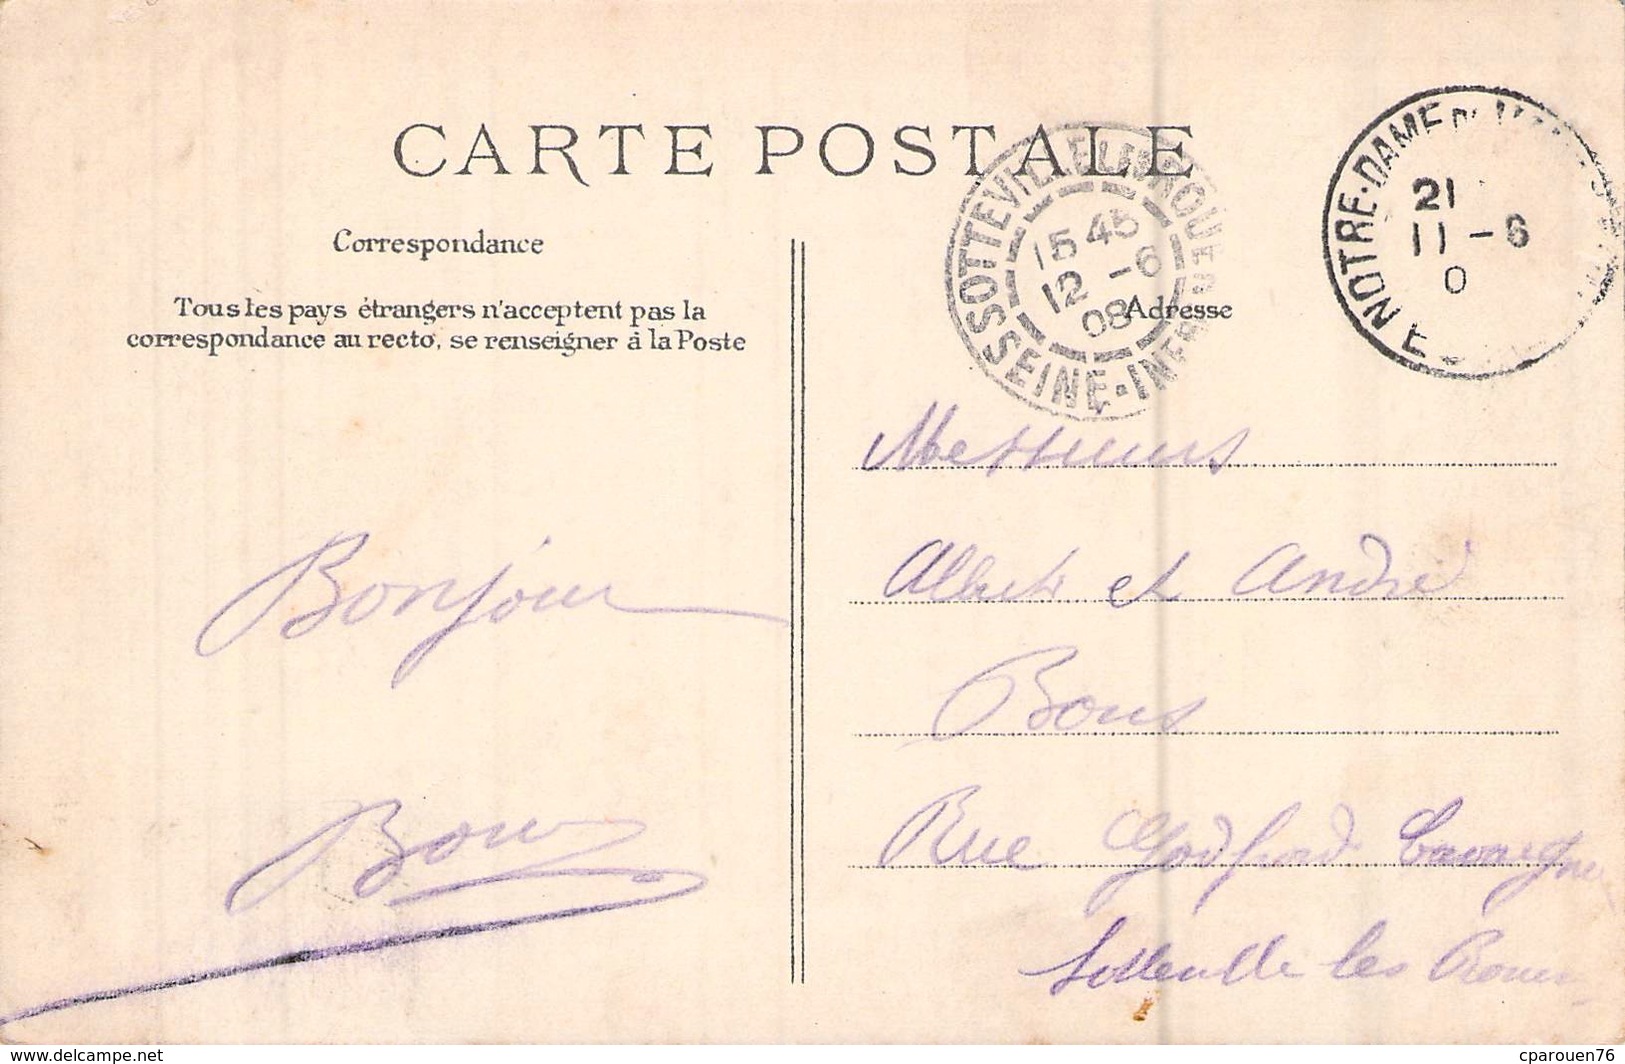 CARTE POSTALE
Correspondance
Tous les pays étrangers n'acceptent pas la
correspondance au recto, se renseigner à la Poste
Bonjour
Bous
Adresse
SOTTEVILLE LES ROUEN
15 45
12 - 6
08
SEINE-INFRE
NOTRE-DAME
21
11 - 6
0
E
Messieurs
Albert et André
Bous
Rue Godfroid Cavaignac
Sotteville les Rouen
delcampe.net
cparouen76